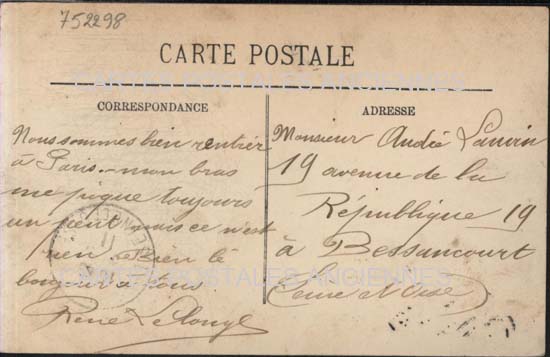 752298
CARTE POSTALE
CARTES POSTALES ANCIENNES
CORRESPONDANCE
Nous sommes bien rentrés
à Paris. - mon bras
me pique toujours
un peut mais ce n'est
rien. Bien le
bonjour à tous.
René
ADRESSE
Monsieur André
19 avenue de la
République 19
à Bessancourt
Seine et Oise
CARTES POSTALES ANCIENNES